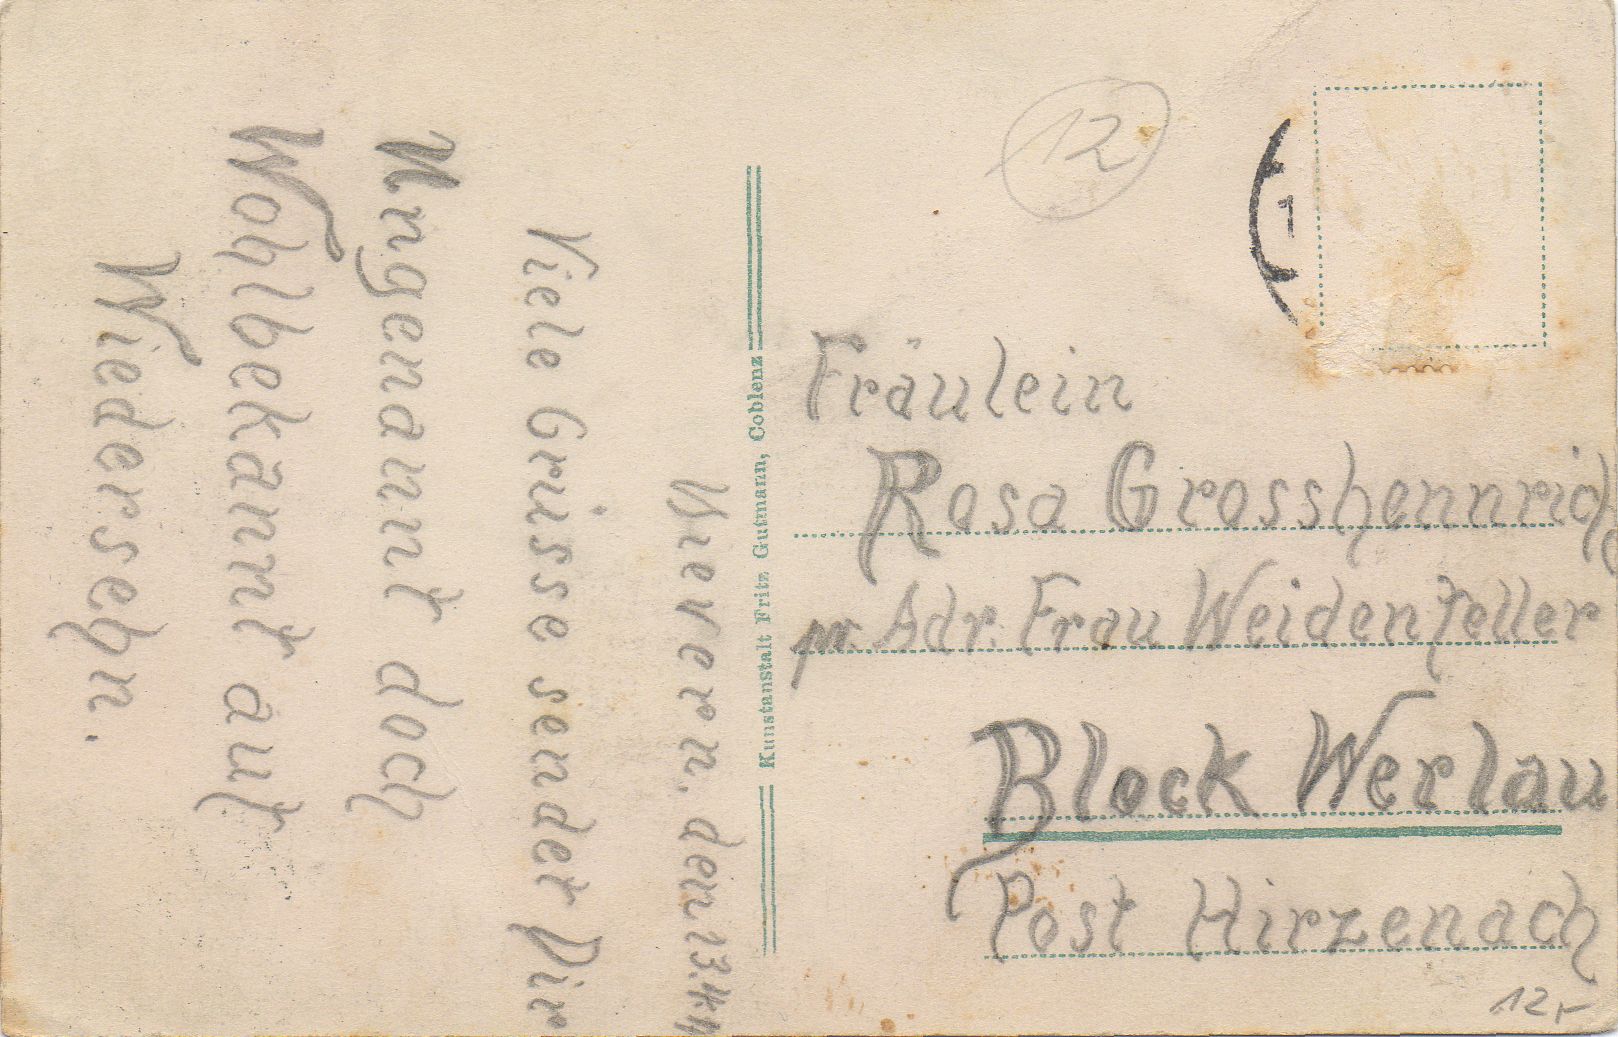 Nievern. den 13.
Viele Grüsse sendet Dir
Ungenannt doch
Wohlbekannt auf
Wiedersehn.
Kunstanstalt Fritz Gutmann, Coblenz
12
1
Fräulein
Rosa Grosshennrich
pr. Adr. Frau Weidenfeller
Block Werlau
Post Hirzenach
12,-